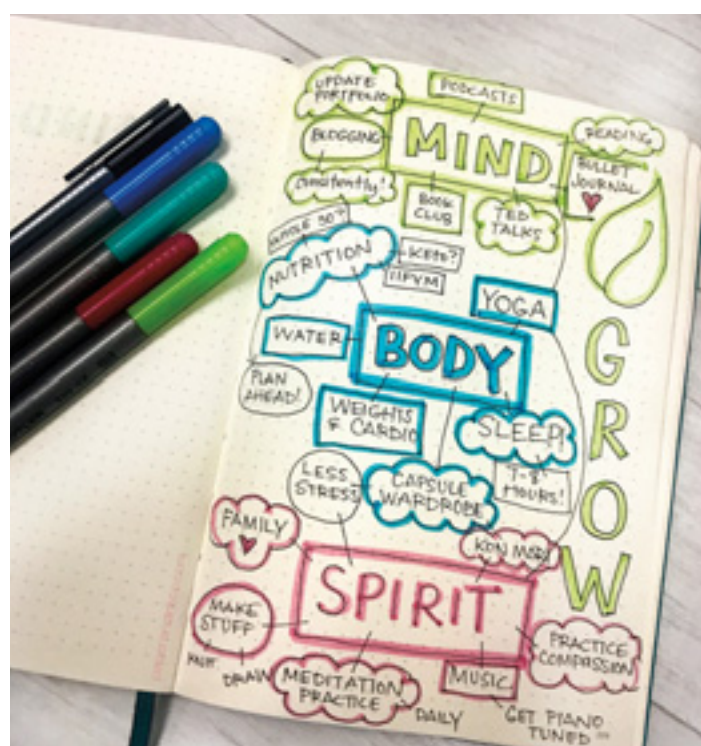 UPDATE
PORTFOLIO
PODCASTS
BLOGGING
MIND
READING
BULLET
JOURNAL
Consistently!
BOOK
CLUB
TED
TALKS
WHOLE 30?
NUTRITION
KETO?
IIFYM
YOGA
WATER
BODY
PLAN
AHEAD!
WEIGHTS
& CARDIO
SLEEP!
7-8
HOURS!
LESS
STRESS
CAPSULE
WARDROBE
GROW
FAMILY
KON MARI
SPIRIT
MAKE
STUFF
DRAW
MEDITATION
PRACTICE
DAILY
MUSIC
GET PIANO
TUNED
PRACTICE
COMPASSION